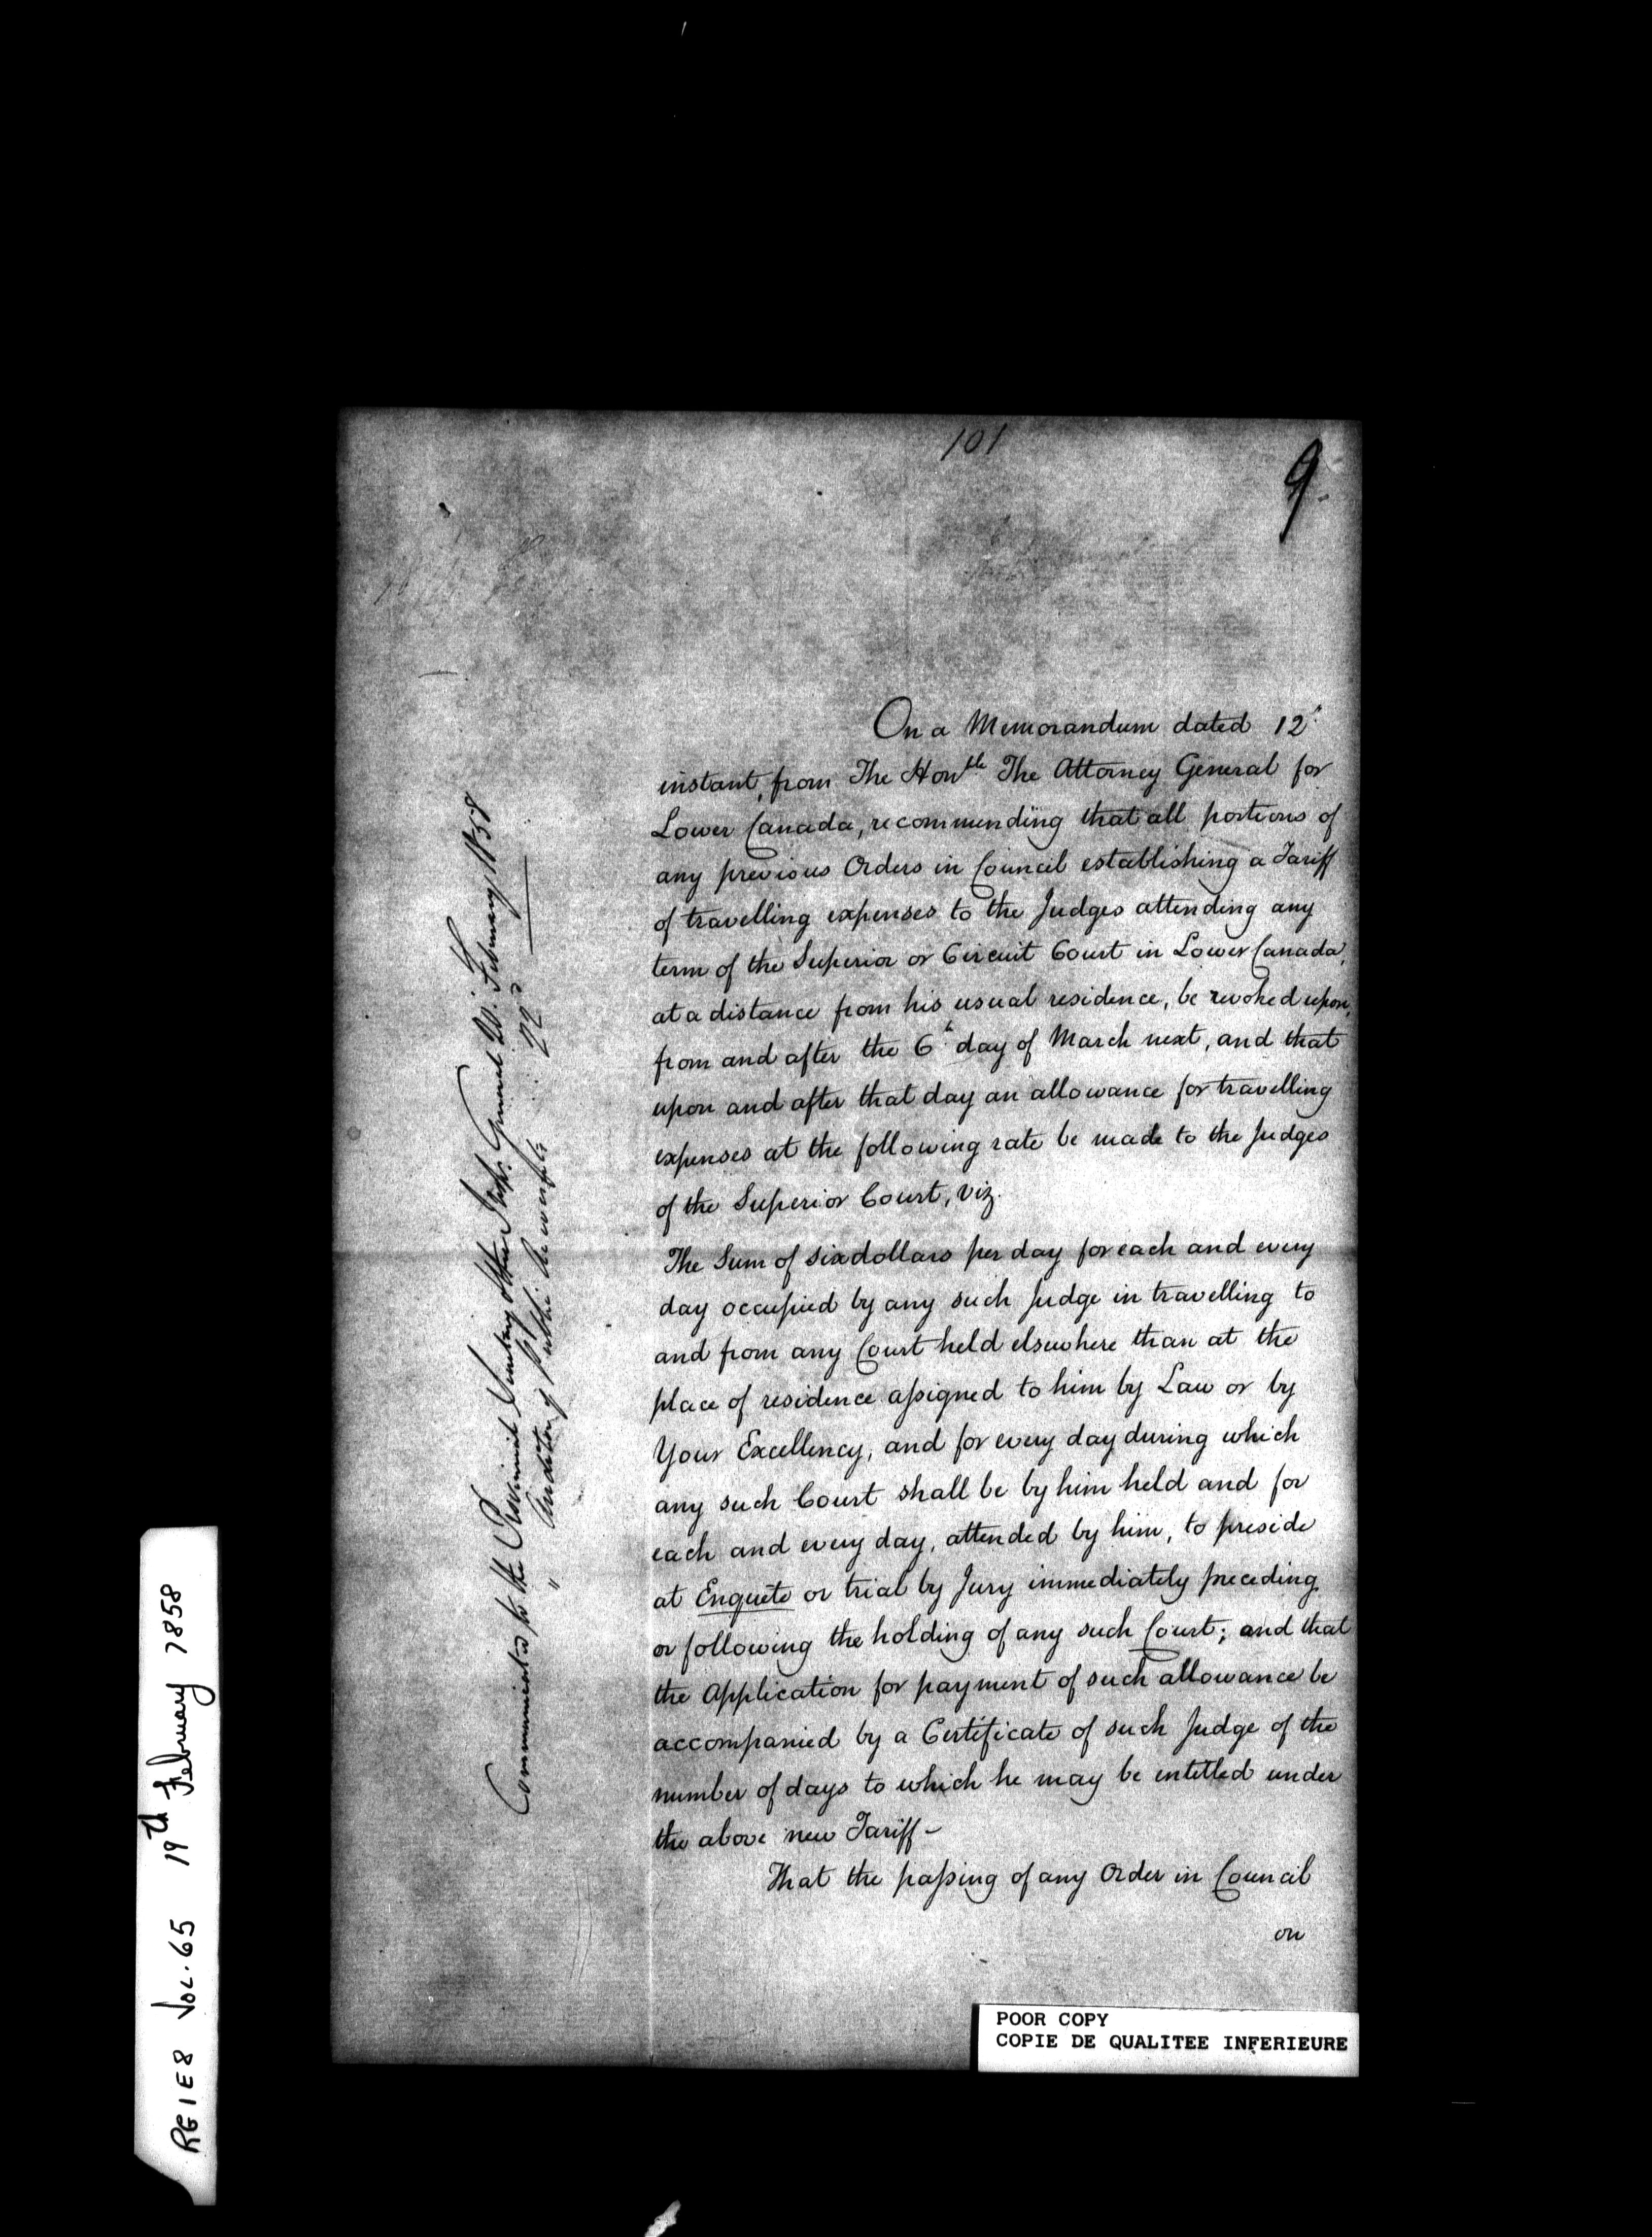 101
9
On a Memorandum dated 12th
instant, from The Honble The Attorney General for
Lower Canada, recommending that all portions of
any previous Orders in Council establishing a Tariff
of travelling expenses to the Judges attending any
term of the Superior or Circuit Court in Lower Canada,
at a distance from his usual residence, be revoked upon,
from and after the 6th day of March next, and that
upon and after that day an allowance for travelling
expenses at the following rate be made to the Judges
of the Superior Court, viz.
The Sum of six dollars per day for each and every
day occupied by any such Judge in travelling to
and from any Court held elsewhere than at the
place of residence assigned to him by Law or by
Your Excellency, and for every day during which
any such Court shall be by him held and for
each and every day, attended by him, to preside
at Enquête or trial by Jury immediately preceding
or following the holding of any such Court; and that
the Application for payment of such allowance be
accompanied by a Certificate of such Judge of the
number of days to which he may be entitled under
the above new Tariff –
That the passing of any Order in Council
on
Communicated to the Provincial Secretary & the Insp. General 20. February 1858
" Auditor of Public Accounts 22d
RG1E8 VOL. 65 19th February 1858
POOR COPY
COPIE DE QUALITEE INFERIEURE